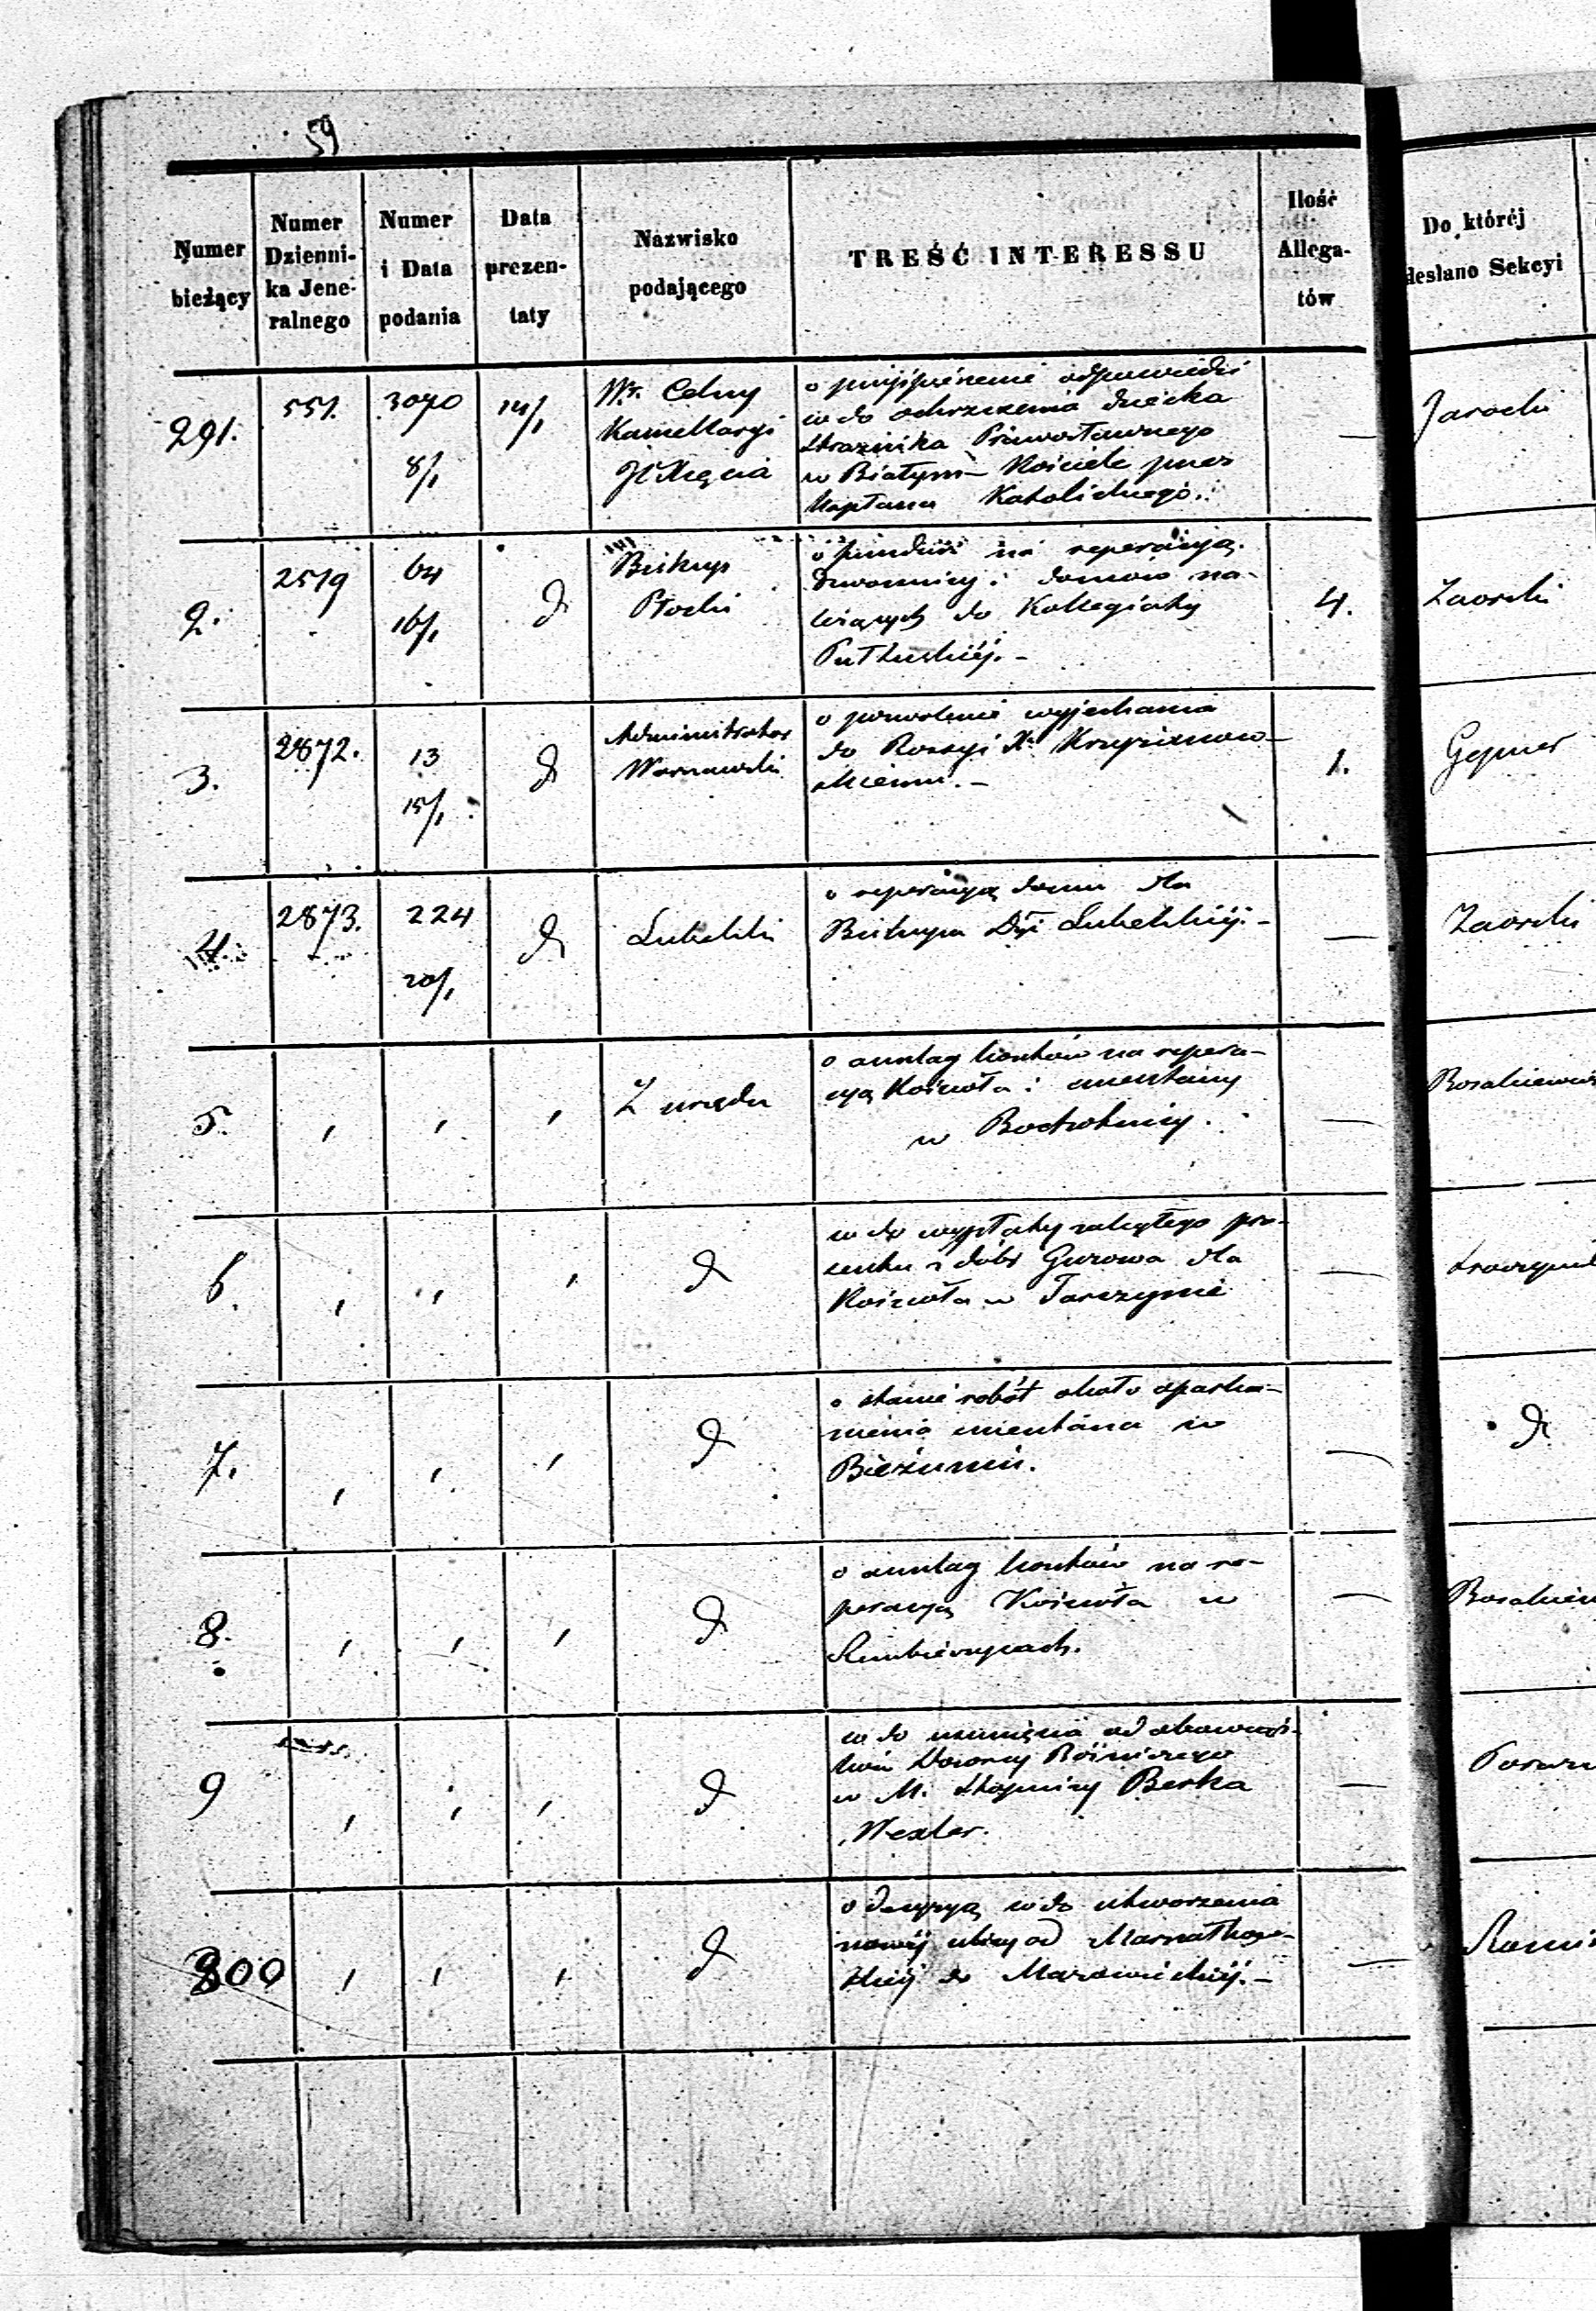 59
Numer bieżący
Numer Dzienni-ka Jene-ralnego
Numer i Data podania
Data prezen-taty
Nazwisko podającego
TREŚĆ INTERESSU
Ilość Allega-tów
Do któréj
desłano Sekcyi
291. 551. 3070 8/1 14/1
Celny
Kancellaryi
o przyśpieszenie odpowiedzi
w do ochrzczenia dziecka
Strażnika Prawosławnego
w Białym Kościele przez
Kapłana Katolickiego.
— Jarocki
2. 2579 64 16/1 d
Biskup
Płocki
o fundusz na reperacyą
Dzwonnicy i domów na-
leżących do Kollegiaty
Pułtuskiéj. –
4. Zaorski
3. 2872. 13 15/1 d
Administrator
Warszawski
o pozwolenie wyjechania
do Rossyi X. Krzyżanow-
skiemu. –
1. Gejmer
4. 2873. 224 20/1 d
Lubelski
o reperacyą domu dla
Biskupa Dyi Lubelskiéj. –
— Zaorski
5. , , ,
Z urzędu
o anszlag kosztów na repera-
cyą Kościoła i cmentarzy
w
—
6. , , , d
w do wypłaty zaległego pro-
centu z dóbr Gurowa dla
Kościoła w Tarczynie
—
7. , , , d
o stanie robót około oparka-
nienia cmentarza w
Bieżuniu.
— d
8. , , , d
o anszlag kosztów na re-
peracyą Kościoła w
—
9 , , , d
w do usunięcia od obowiąz-
ków Dozorcy Bóżniczego
w M. Stopnicy Berka
Wexler.
—
300 , , , d
o decyzyą w do utworzenia
nowéj ulicy od Marszałkow-
skiéj do Mazowieckiéj. –
—